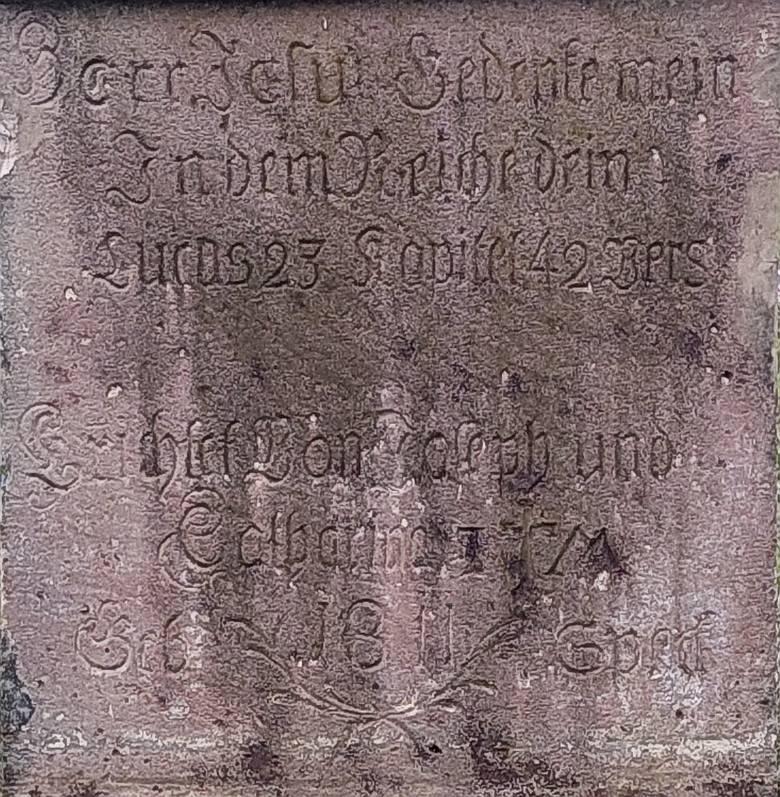 Herr Jesu Gedenke mein
In dem Reiche dein
Lucas 23 Kapitel 42 Vers
Erichtet Von Joseph und
Catharina
Geb 1811